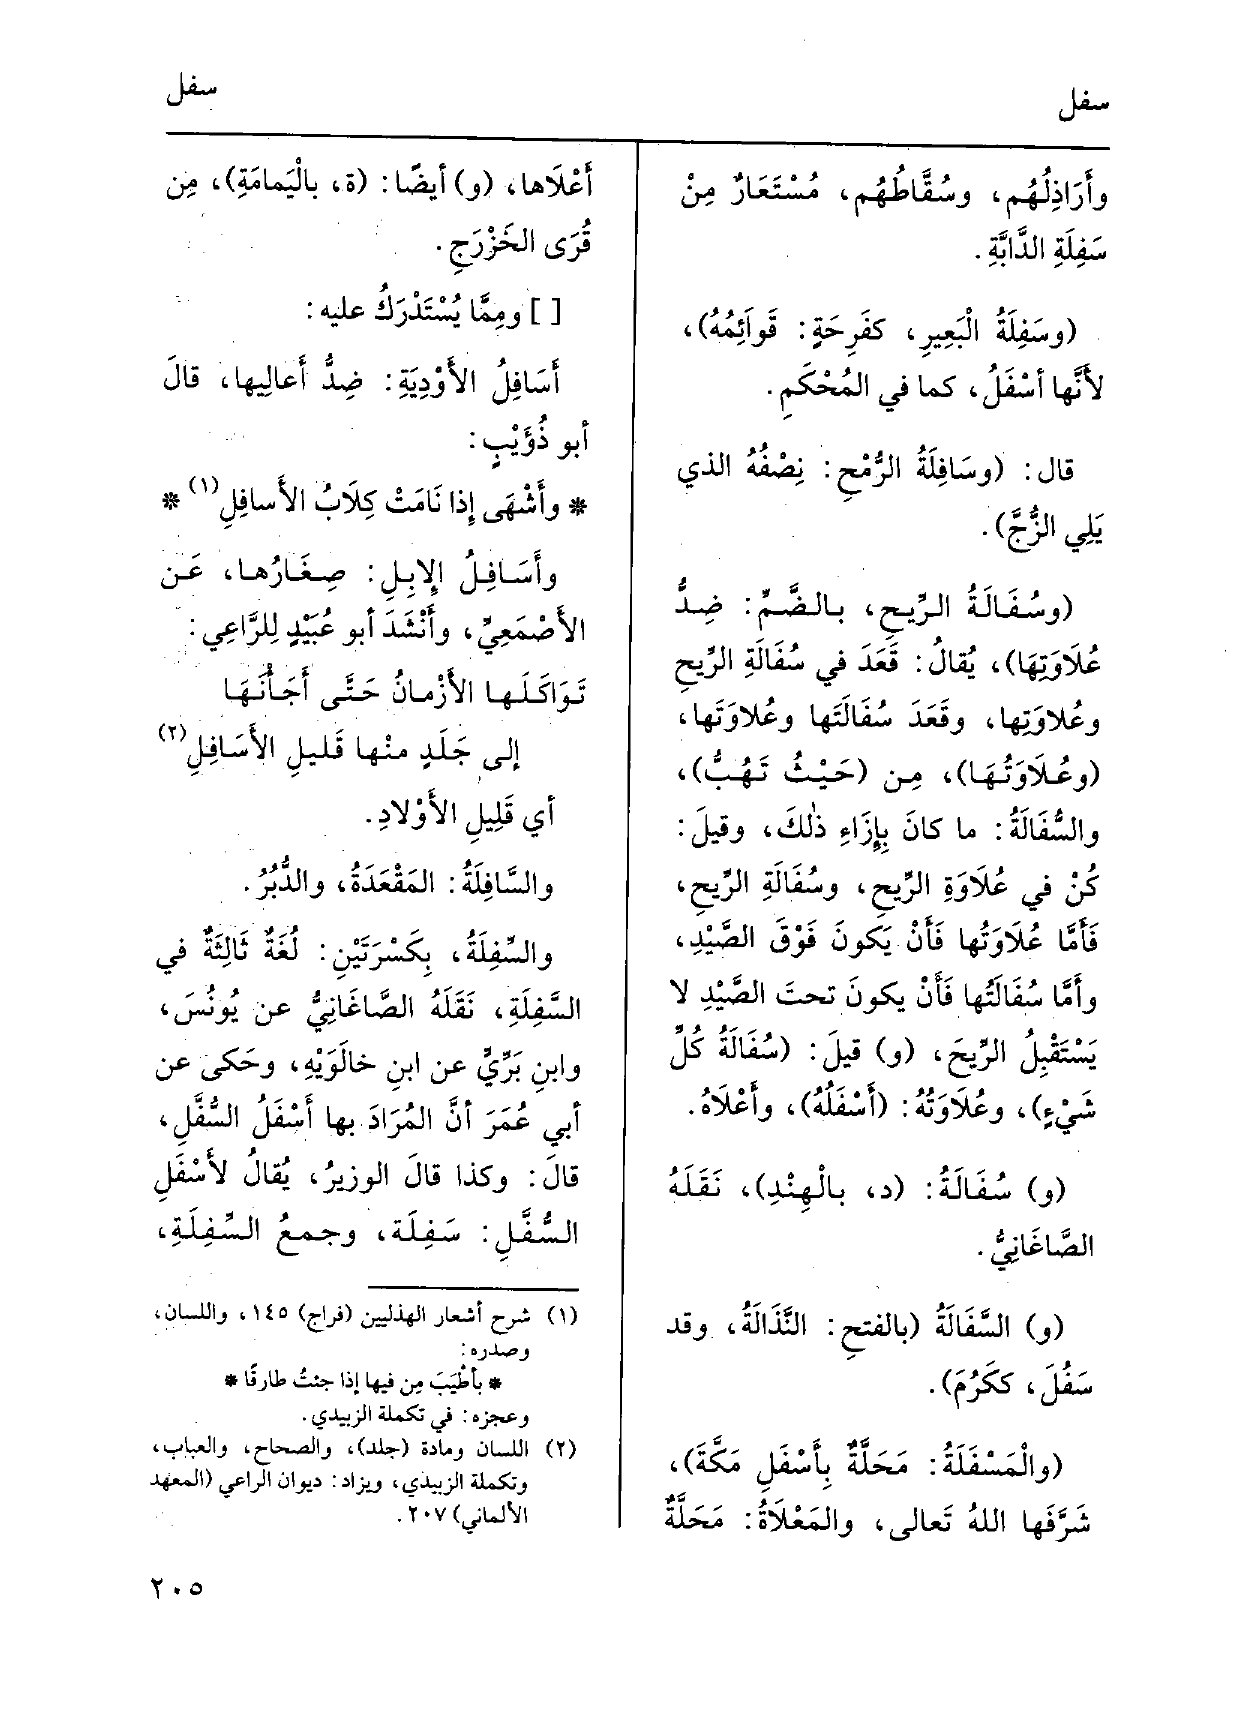 سفل
سفل
وأَرَاذِلُهُم، وسُقَّاطُهُم، مُسْتَعَارٌ مِنْ
سَفِلَةِ الدَّابَّةِ.
(وسَفِلَةُ الْبَعِيرِ، كفَرِحَةٍ: قَوائِمُهُ)،
لأَنَّها أسْفَلُ، كما في المُحْكَمِ.
قال: (وسَافِلَةُ الرُّمْحِ: نِصْفُهُ الذي
يَلِي الزُّجَّ).
(وسُفَالَةُ الرِّيحِ، بالضَّمِّ: ضِدُّ
عُلَاوَتِهَا)، يُقالُ: قَعَدَ في سُفَالَةِ الرِّيحِ
وعُلاوَتِها، وقَعَدَ سُفَالَتَها وعُلاوَتَها،
(وعُلَاوَتُهَا)، مِن (حَيْثُ تَهُبُّ)،
والسُّفَالَةُ: ما كانَ بِإِزَاءِ ذٰلكَ، وقيلَ:
كُنْ في عُلَاوَةِ الرِّيحِ، وسُفَالَةِ الرِّيحِ،
فَأَمَّا عُلَاوَتُها فَأَنْ يَكونَ فَوْقَ الصَّيْدِ،
وأمَّا سُفَالَتُها فَأَنْ يكونَ تحتَ الصَّيْدِ لا
يَسْتَقْبِلُ الرِّيحَ، (و) قيلَ: (سُفَالَةُ كُلِّ
شَيْءٍ)، وعُلَاوَتُهُ: (أَسْفَلُهُ)، وأَعْلَاهُ.
(و) سُفَالَةُ: (د، بالْهِنْدِ)، نَقَلَهُ
الصَّاغَانِيُّ.
(و) السَّفَالَةُ (بالفتحِ: النَّذَالَةُ، وقد
سَفُلَ، ككَرُمَ).
(والْمَسْفَلَةُ: مَحَلَّةٌ بِأَسْفَلِ مَكَّةَ)،
شَرَّفَها اللهُ تَعالى، والمَعْلَاةُ: مَحَلَّةٌ
أَعْلَاها، (و) أيضًا: (ة، بالْيَمامَةِ)، مِن
قُرَى الخَزْرَجِ.
[ ] ومِمَّا يُسْتَدْرَكُ عليه:
أَسَافِلُ الأَوْدِيَةِ: ضِدُّ أَعالِيها، قالَ
أبو ذُؤَيْبٍ:
* وأَشْهَى إذا نَامَتْ كِلَابُ الأَسافِلِ(١) *
وأَسَافِلُ الإِبِلِ: صِغَارُها، عَن
الأَصْمَعِيِّ، وأَنْشَدَ أبو عُبَيْدٍ لِلرَّاعِي:
تَوَاكَلَها الأَزْمانُ حَتَّى أَجَأْنَهَا
إلى جَلَدٍ منها قَليلِ الأَسَافِلِ(٢)
أي قَلِيلِ الأَوْلادِ.
والسَّافِلَةُ: المَقْعَدَةُ، والدُّبُرُ.
والسِّفِلَةُ، بِكَسْرَتَيْنِ: لُغَةٌ ثَالِثَةٌ في
السَّفِلَةِ، نَقَلَهُ الصَّاغَانِيُّ عن يُونُسَ،
وابنِ بَرِّيٍّ عن ابنِ خالَوَيْهِ، وحَكى عن
أبي عُمَرَ أنَّ المُرَادَ بها أَسْفَلُ السُّفَّلِ،
قالَ: وكذا قالَ الوزيرُ، يُقالُ لأَسْفَلِ
السُّفَّلِ: سَفِلَة، وجمعُ السِّفِلَةِ،
(١) شرح أشعار الهذليين (فراج) ١٤٥، واللسان،
وصدره:
* بأطْيَبَ مِن فيها إذا جئتُ طارقًا *
وعجزه: في تكملة الزبيدي.
(٢) اللسان ومادة (جلد)، والصحاح، والعباب،
وتكملة الزبيدي، ويزاد: ديوان الراعي (المعهد
الألماني) ٢٠٧.
٢٠٥